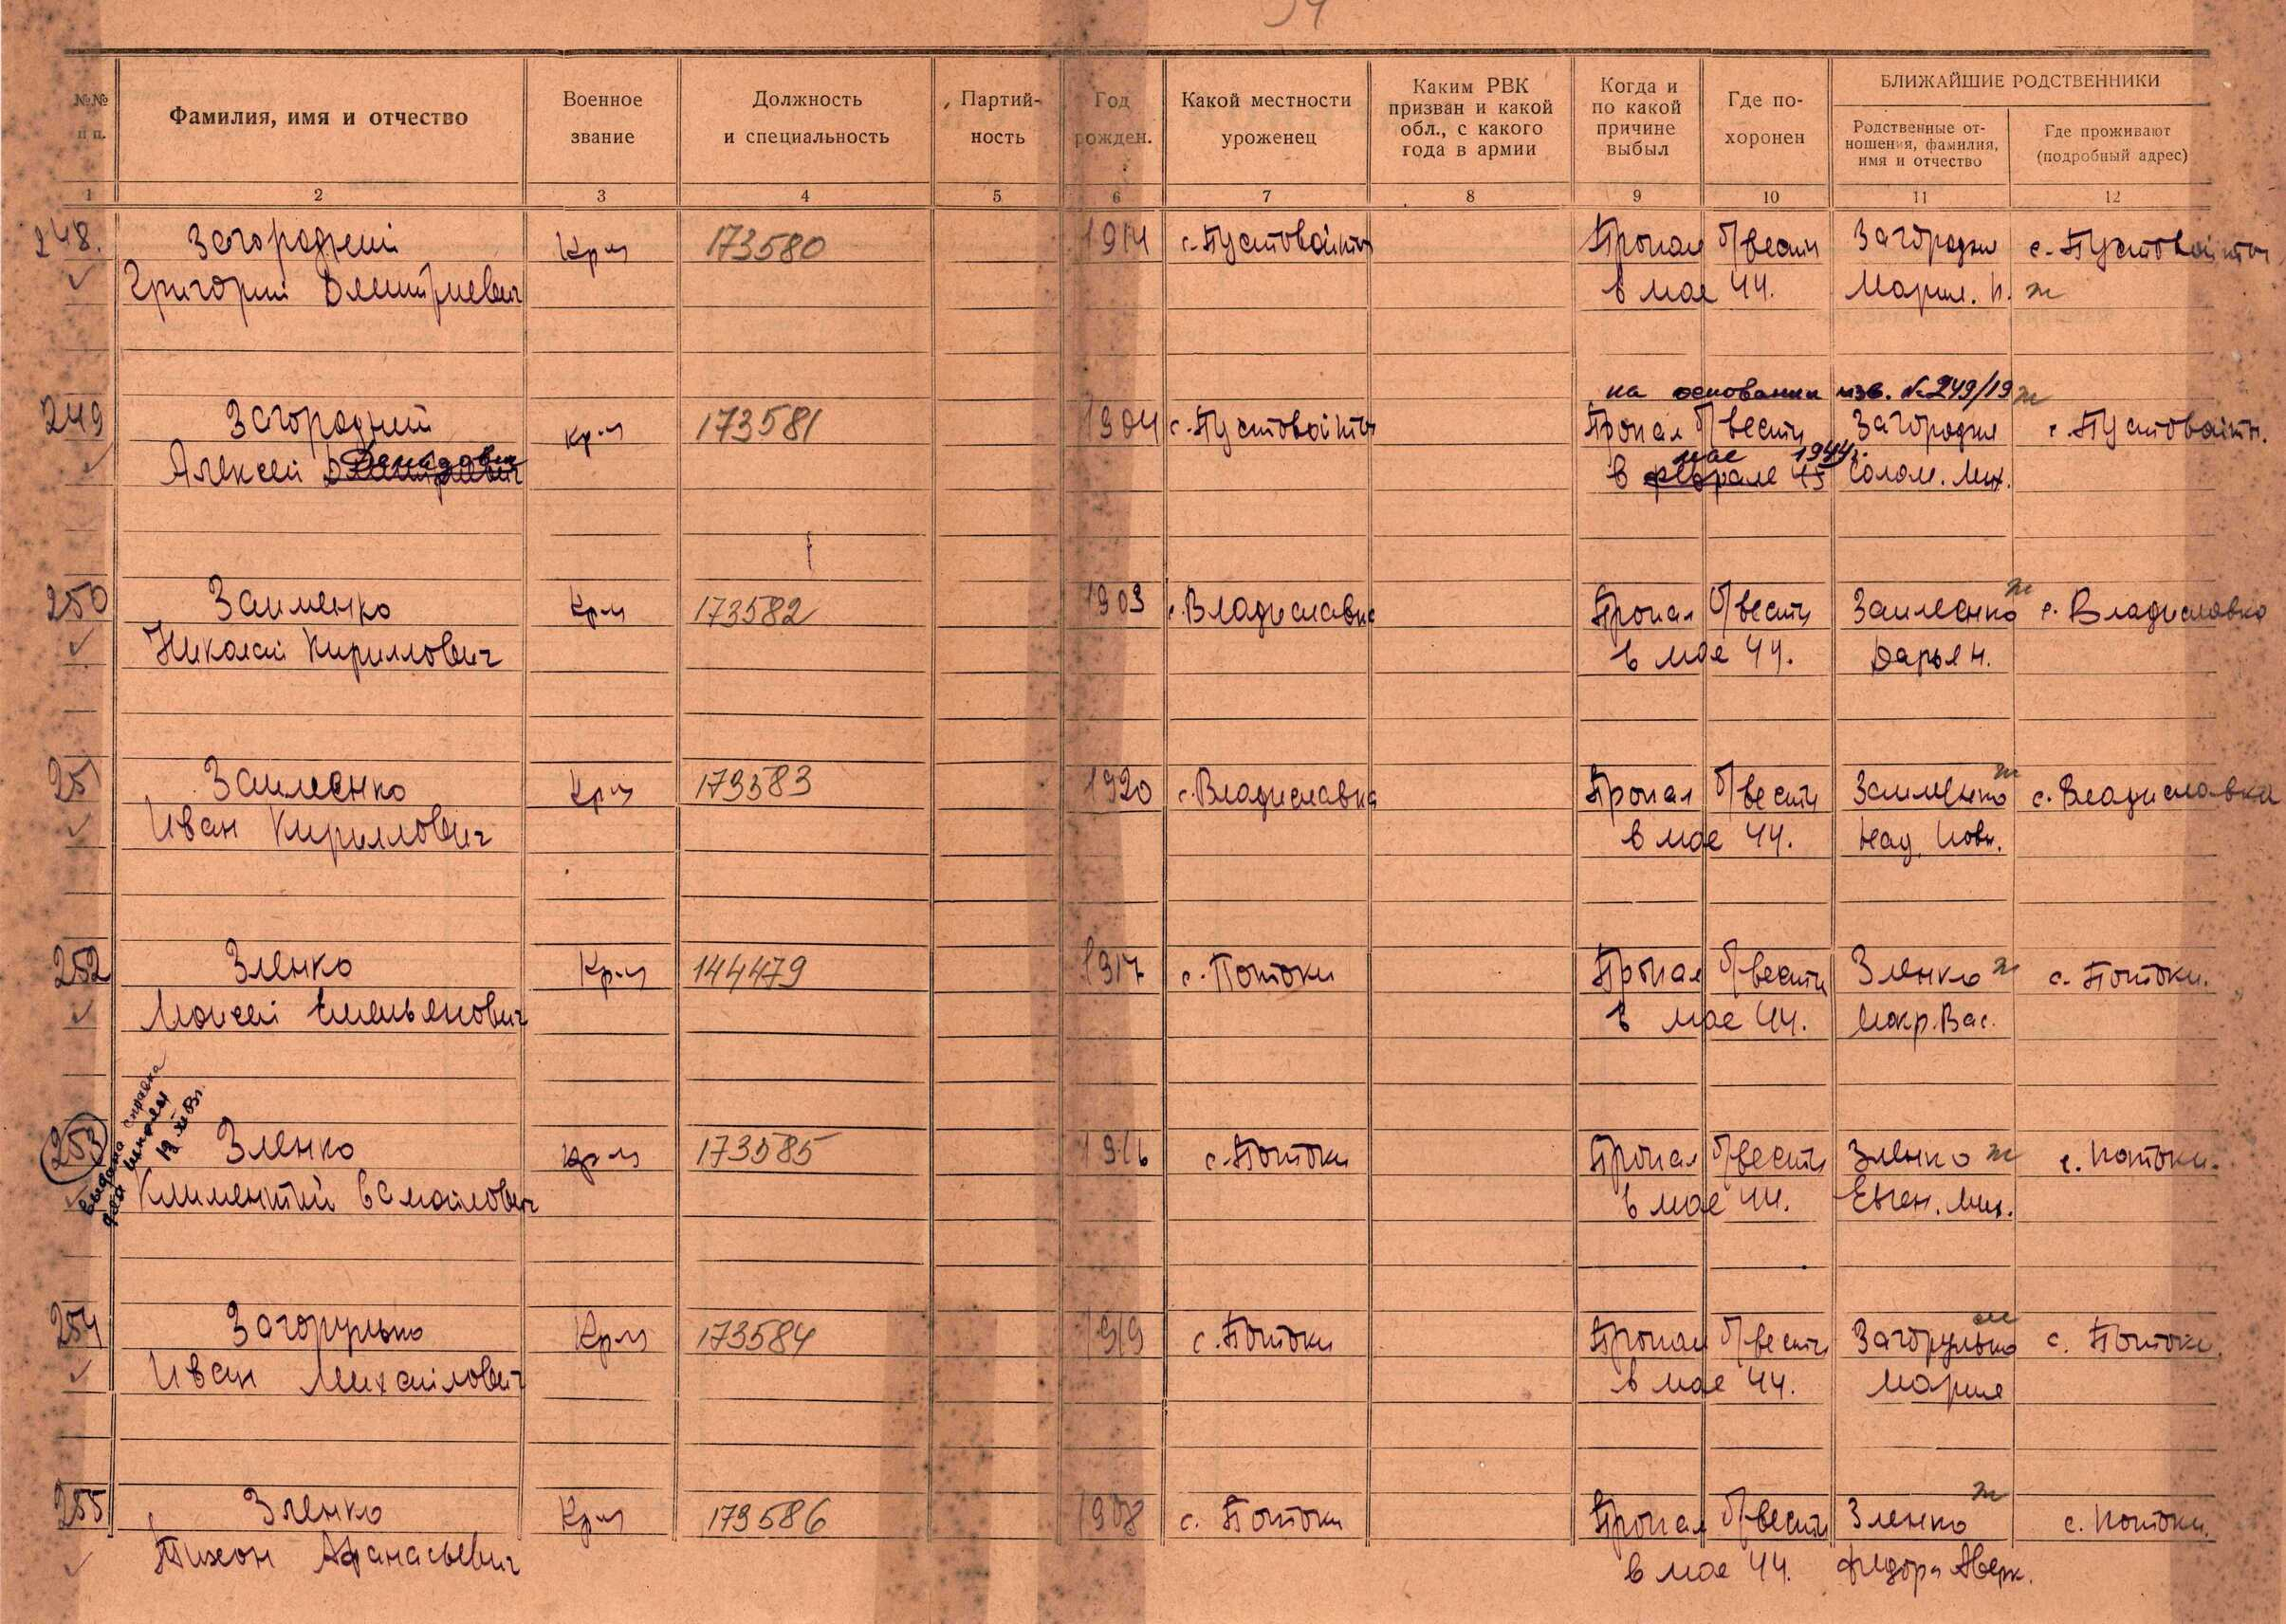 №№ п п.
Фамилия, имя и отчество
Военное звание
Должность и специальность
Партий- ность
Год рожден.
Какой местности уроженец
Каким РВК призван и какой обл., с какого года в армии
Когда и по какой причине выбыл
Где по- хоронен
БЛИЖАЙШИЕ РОДСТВЕННИКИ
Родственные от- ношения, фамилия, имя и отчество
Где проживают (подробный адрес)
1 2 3 4 5 6 7 8 9 10 11 12
248. Загородний Кр-ц 173580 1914 с. Пустовойты Пропал б/вести Загородня с. Пустовойты
Григорий Дмитриевич в мае 44. Мария. И. ж
на основании изв. №249/19 ж
249 Загородний кр-ц 173581 1904 с. Пустовойты Пропал б/вести Загородня с. Пустовойты.
Демидович мае 1944г.
Алексей Дмитриевич в феврале 45 Солом. Мих.
250 Заименко Кр-ц 173582 1903 с. Владиславка Пропал б/вести Заименко ж с. Владиславка
Николай Кириллович в мае 44. Дарья Н.
251 Заименко Кр-ц 173583 1920 с. Владиславка Пропал б/вести Заименко ж с. Владиславка
Иван Кириллович в мае 44. Над.
252 Зленко Кр-ц 144479 1917 с. Потоки Пропал б/вести Зленко ж с. Потоки.
Моисей Емельянович в мае 44. Мокр. Вас.
выдана справка
для
253 Зленко кр-ц 173585 1916 с. Потоки Пропал б/вести Зленко ж с. Потоки.
Климентий в мае 44. Евген. Мих.
254 Загорулько Кр-ц 173584 1919 с. Потоки Пропал б/вести Загорулько с. Потоки.
Иван Михайлович в мае 44. Мария
255 Зленко Кр-ц 173586 1908 с. Потоки Пропал б/вести Зленко ж с. Потоки.
Тихон Афанасьевич в мае 44. Федора Аверк.